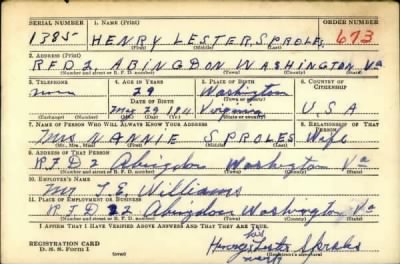 SERIAL NUMBER 1. NAME (Print) ORDER NUMBER
1385 HENRY LESTER SPROLES 673
(First) (Middle) (Last)
2. ADDRESS (Print)
R.F.D 2, ABINGDON WASHINGTON Va
(Number and street or R. F. D. number) (Town) (County) (State)
3. TELEPHONE 4. AGE IN YEARS 5. PLACE OF BIRTH 6. COUNTRY OF CITIZENSHIP
none 29 Washington
(Town or county)
DATE OF BIRTH
May 29 Virginia U.S.A
(Mo.) (Day) (Yr.) (State or country)
7. NAME OF PERSON WHO WILL ALWAYS KNOW YOUR ADDRESS 8. RELATIONSHIP OF THAT PERSON
Mrs NANNIE SPROLES Wife
(Mr., Mrs., Miss) (First) (Middle) (Last)
9. ADDRESS OF THAT PERSON
R.F.D 2 Abingdon Washington Va
(Number and street or R. F. D. number) (Town) (County) (State)
10. EMPLOYER'S NAME
Mr. T.E. Williams
11. PLACE OF EMPLOYMENT OR BUSINESS
R.F.D 2 Abingdon Washington Va
(Number and street or R. F. D. number) (Town) (County) (State)
I AFFIRM THAT I HAVE VERIFIED ABOVE ANSWERS AND THAT THEY ARE TRUE.
his
REGISTRATION CARD
D. S. S. Form 1 (over) Henry Lester Sproles
mark (Registrant's signature)